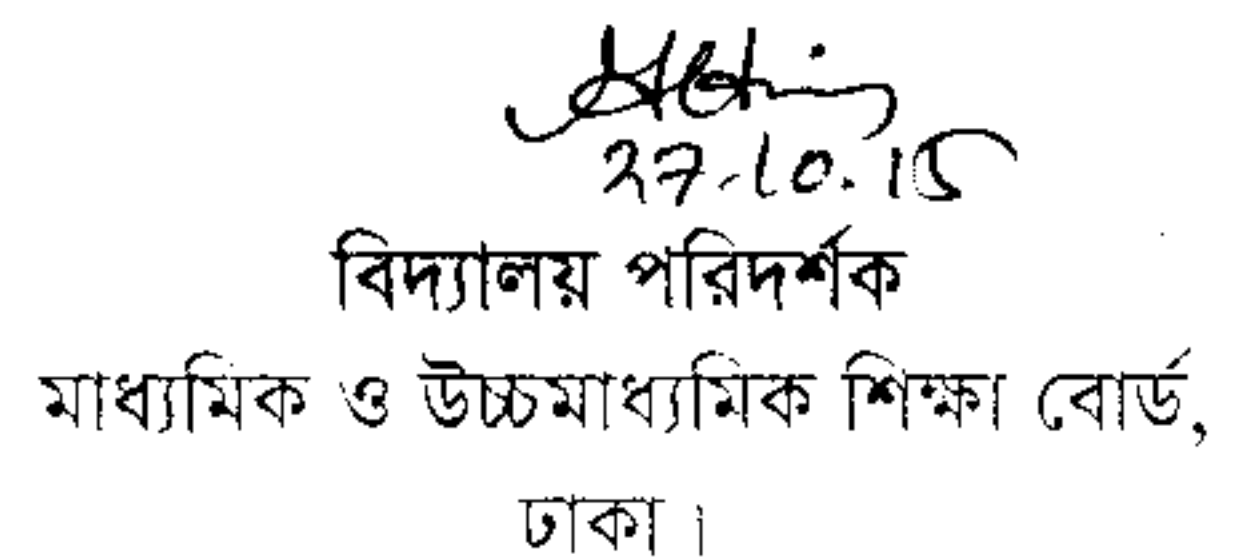 27.10.15
বিদ্যালয় পরিদর্শক
মাধ্যমিক ও উচ্চমাধ্যমিক শিক্ষা বোর্ড,
ঢাকা।